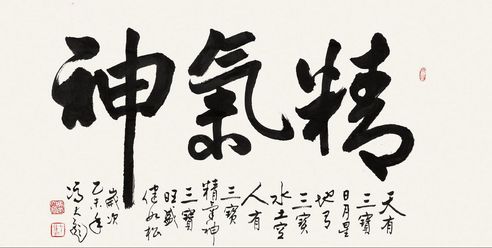 精氣神
天有
三寶
日月星
地有
三寶
水土空
人有
三寶
精氣神
三寶
旺盛
健如松
歲次
乙未年
馮大彪